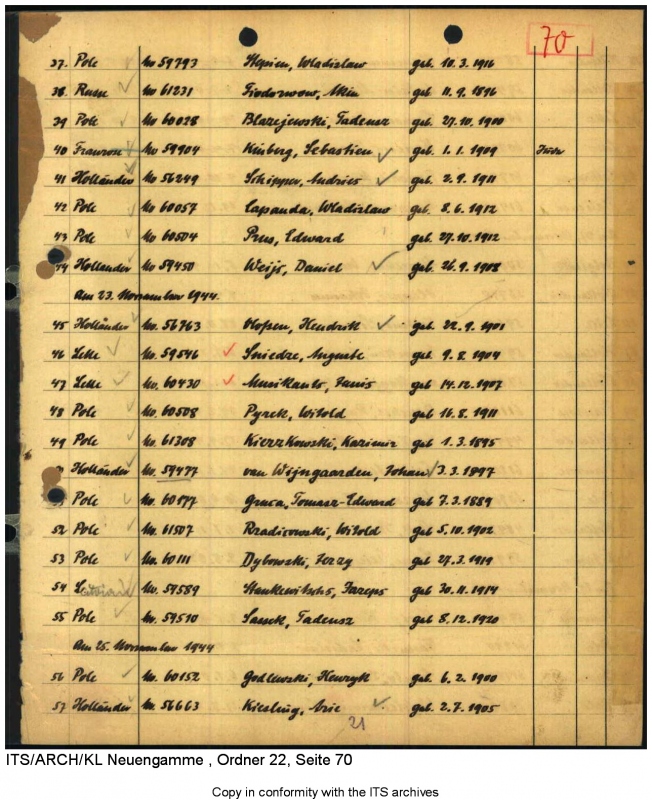 70
37. Pole No 59793 Stepien, Wladislaw geb. 10.3.1916
38. Russe No 61231 geb. 11.9.1896
39 Pole No 60028 Blazejewski, Tadeusz geb. 27.10.1900
40 Franzose No 59904 Kinberg, Sebastien geb. 1.1.1909 Jude
41 Holländer No 56249 Schipper, Andries geb. 2.9.1911
42 Pole No 60057 Capanda, Wladislaw geb. 8.6.1912
43 Pole No 60504 Prus, Edward geb. 27.10.1912
44 Holländer No 59450 Weijs, Daniel geb. 26.9.1908
Am 23. November 1944.
45 Holländer No. 56763 Hendrik geb. 22.9.1901
46 Lette No. 59546 Sniedze, Auguste geb. 9.8.1904
47 Lette No. 60430 Musikants, Janis geb 14.12.1907
48 Pole No. 60508 Pyrek, Witold geb 16.8.1911
49 Pole No. 61308 Kierzkowski, Kazimir geb 1.3.1895
Holländer No. 59477 van Wijngaarden, Johan 3.3.1897
Pole No. 60177 Gruca, Tomasz-Edward geb 7.3.1889
52 Pole No. 61507 Rzadicowski, Witold geb 5.10.1902
53 Pole No. 60111 Dybowski, Jerzy geb 27.3.1919
54 No. 59589 Stankewitschs, Jazeps geb 30.11.1914
55 Pole No. 59510 Sassek, Tadeusz geb 8.12.1920
Am 25. November 1944
56 Pole No. 60152 Godlewski, Henryk geb. 6.2.1900
57 Holländer No. 56663 Kiesling, Arie geb. 2.7.1905
21
ITS/ARCH/KL Neuengamme , Ordner 22, Seite 70
Copy in conformity with the ITS archives